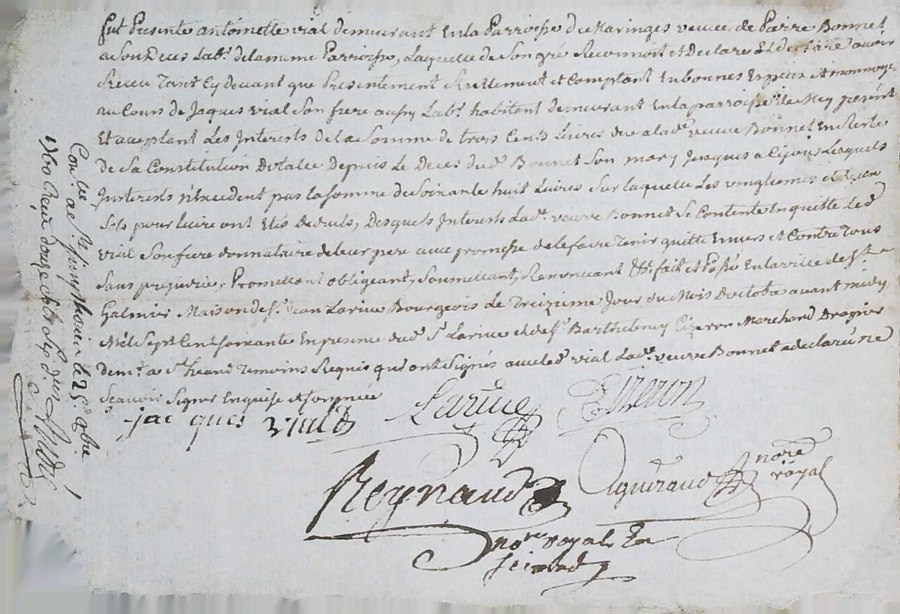 fut Presente antoinette vial demeurant En la Parroisse de Maringes veuve de Pierre Bonnet
Lab. de la meme Parroisse, Laquelle de Son gré Reconnoit et Declare avoir
Receu Tant Cy devant que Presentement Reellement et Comptant En bonnes Especes et monnoye
au Cours de Jaques vial Son frere aussy Lab. habitant demeurant En la parroisse de present
Et acceptant Les Interets de la Somme de trois Cens Livres due a lad. veuve Bonnet En Reste
de Sa Constitution Dotalle Depuis Le Deces dud. Bonnet Son mary Jusques a Lesquels
Interets n'Excedent pas la Somme de Soixante huit Livres Sur laquelle Les vingtiemes et
Sols pour livre ont Etés Deduits, Desquels Interets Lad. veuve Bonnet Se Contente En quitte led.
vial Son frere donnataire de leur pere avec promesse de le faire Tenir quitte Envers et Contre Tous
Sans prejudice, Promettant obligeant, Soumettant, Renonceant &a. fait et Passé En la ville de St
Galmier Maison de Sr. Jean Larive Bourgeois Le Treizieme Jour du Mois D'octobre avant midy
Mil Sept Cent Soixante En presence dud. Sr. Larive et de Sr. Barthelemy Eyzeron Marchand Drapier
Temoins Requis qui ont Signés avec led. vial Lad. veuve Bonnet a declaré ne
Scavoir Signer Enquise et Sommée
jac ques vial
Larive
Eyzeron
Reynaud
nore royal
nore royal En
Con. le 25 8bre
1760 Reçu douze Sols